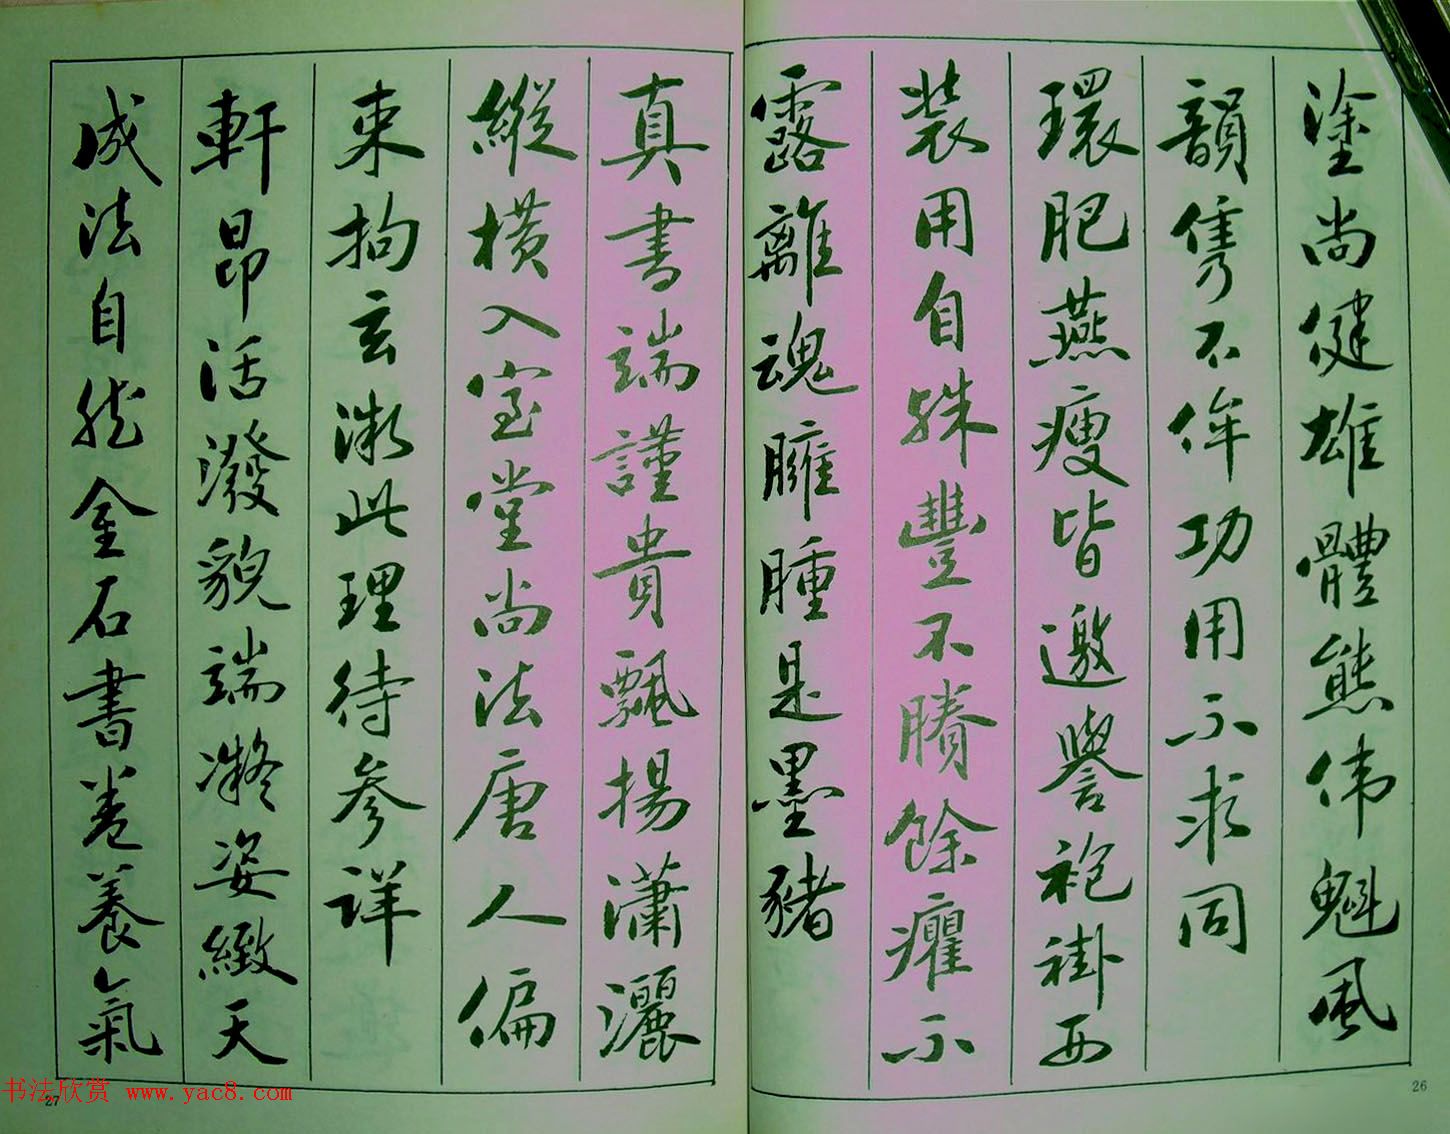 塗尚健雄體熊伟魁風
韻雋不侔功用不求同
環肥燕瘦皆邀譽袍褂西
裝用自殊豐不賸餘癯不
露離魂臃腫是墨豬
真書端謹貴飄揚瀟灑
縱横入室堂尚法唐人偏
束拘玄漵此理待参详
軒昂活潑貌端凝姿緻天
成法自然金石書卷養氣
26
27
书法欣赏 www.yac8.com